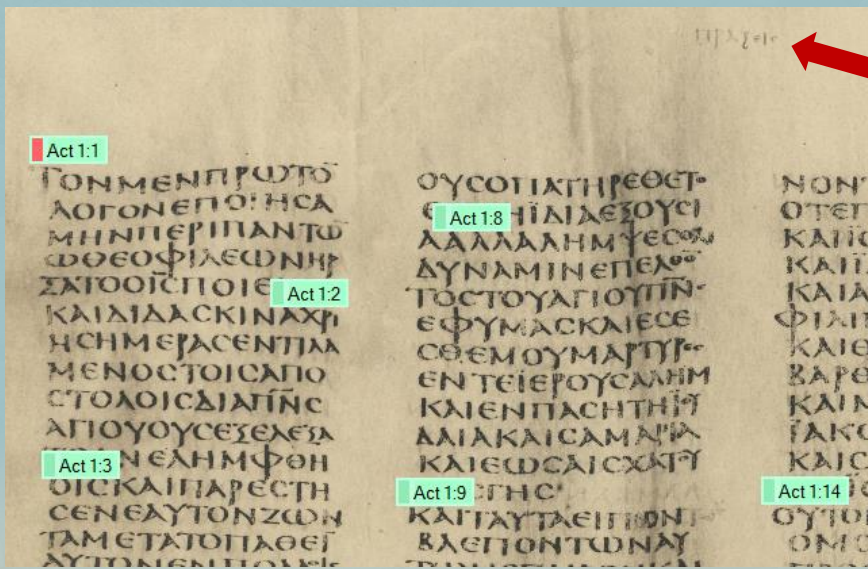 Πραξεις
Act 1:1
ΤΟΝΜΕΝΠΡΩΤΟ̅
ΛΟΓΟΝΕΠΟΙΗCΑ
ΜΗΝΠΕΡΙΠΑΝΤΩ̅
ΩΘΕΟΦΙΛΕΩΝΗΡ
ΞΑΤΟΟΙ̅C̅ΠΟΙΕ
Act 1:2
ΚΑΙΔΙΔΑCΚΙΝΑΧΡΙ
ΗCΗΜΕΡΑCΕΝΤΙΛΑ
ΜΕΝΟCΤΟΙCΑΠΟ
CΤΟΛΟΙCΔΙΑΠ̅Ν̅C
ΑΓΙΟΥΟΥCΕΞΕΛΕΞΑ
Act 1:3
ΝΕΛΗΜΦΘΗ
ΟΙCΚΑΙΠΑΡΕCΤΗ
CΕΝΕΑΥΤΟΝΖΩΝ
ΤΑΜΕΤΑΤΟΠΑΘΕΙ̅
ΑΥΤΟΝΕΝΠΟΛΛΟΙC
ΟΥCΟΠΑΤΗΡΕΘΕΤΟ
Act 1:8
ΗΪΔΙΑΕΞΟΥCΙ
ΑΑΛΛΑΛΗΜΨΕCΘΑΙ
ΔΥΝΑΜΙΝΕΠΕΛΘΟ
ΤΟCΤΟΥΑΓΙΟΥΠ̅Ν̅C
ΕΦΥΜΑCΚΑΙΕCΕ
CΘΕΜΟΥΜΑΡΤΥΡΕC
ΕΝΤΕΪΕΡΟΥCΑΛΗΜ
ΚΑΙΕΝΠΑCΗΤΗΪΟΥ
ΔΑΙΑΚΑΙCΑΜΑΡΙΑ
ΚΑΙΕΩCΑΙCΧΑΤΟΥ
Act 1:9
CΓΗC
ΚΑΙΤΑΥΤΑΕΙΠΟΝΤ
ΒΛΕΠΟΝΤΩΝΑΥ
ΝΟΝΤ
ΟΤΕΠ
ΚΑΙΙΩ
ΚΑΙΪ
ΚΑΙΑ
ΦΙΛΙΠ
ΚΑΙΘ
ΒΑΡΘ
ΚΑΙΜ
ΪΑΚΩ
ΚΑΙC
Act 1:14
ΟΥΤΟΙ
ΟΜΟ